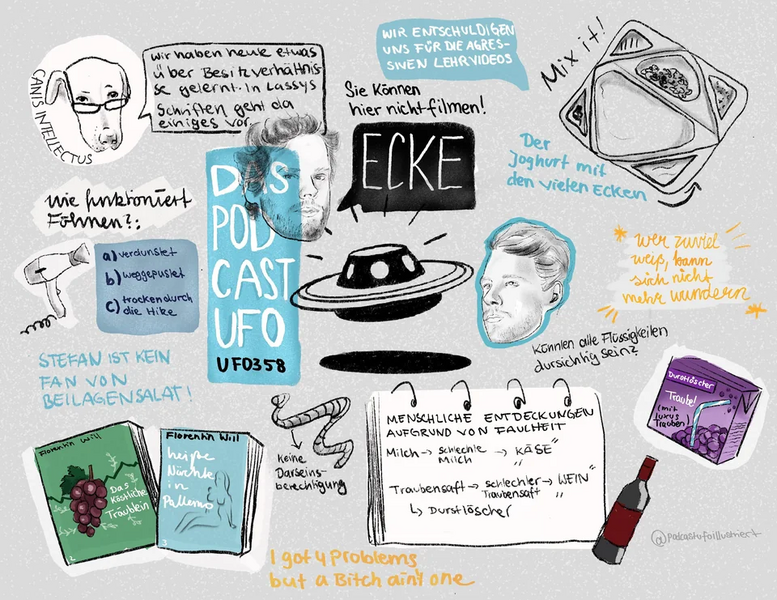 CANIS INTELLECTUS
wir haben heute etwas
über Besitzverhältnis-
se gelernt. In Lassys
Schriften geht da
einiges vor.
WIR ENTSCHULDIGEN
UNS FÜR DIE AGRES-
SIVEN LEHRVIDEOS
Sie Können
hier nicht filmen!
ECKE
Mix it!
Der
Joghurt mit
den vielen Ecken
wie funktioniert
Föhnen?:
a) verdunstet
b) weggepustet
c) trocken durch
die Hike
DAS
POD
CAST
UFO
UFO358
wer zuviel
weiß, kann
sich nicht
mehr wundern
Können alle Flüssigkeiten
dursichtig sein?
STEFAN IST KEIN
FAN VON
BEILAGENSALAT!
Florentin Will
Das
köstliche
Träublein
2
Florentin Will
heiße
Nächte
in
Palermo
3
Keine
Darseins-
berechtigung
MENSCHLICHE ENTDECKUNGEN
AUFGRUND VON FAULHEIT
Milch → schlechte Milch → "KÄSE"
Traubensaft → schlechter Traubensaft → "WEIN"
↳ Durstlöscher
Durstlöscher
Traube!
(mit
luxus
Trauben)
I got 4 Problems
but a Bitch ain't one
@podcastufoillustriert